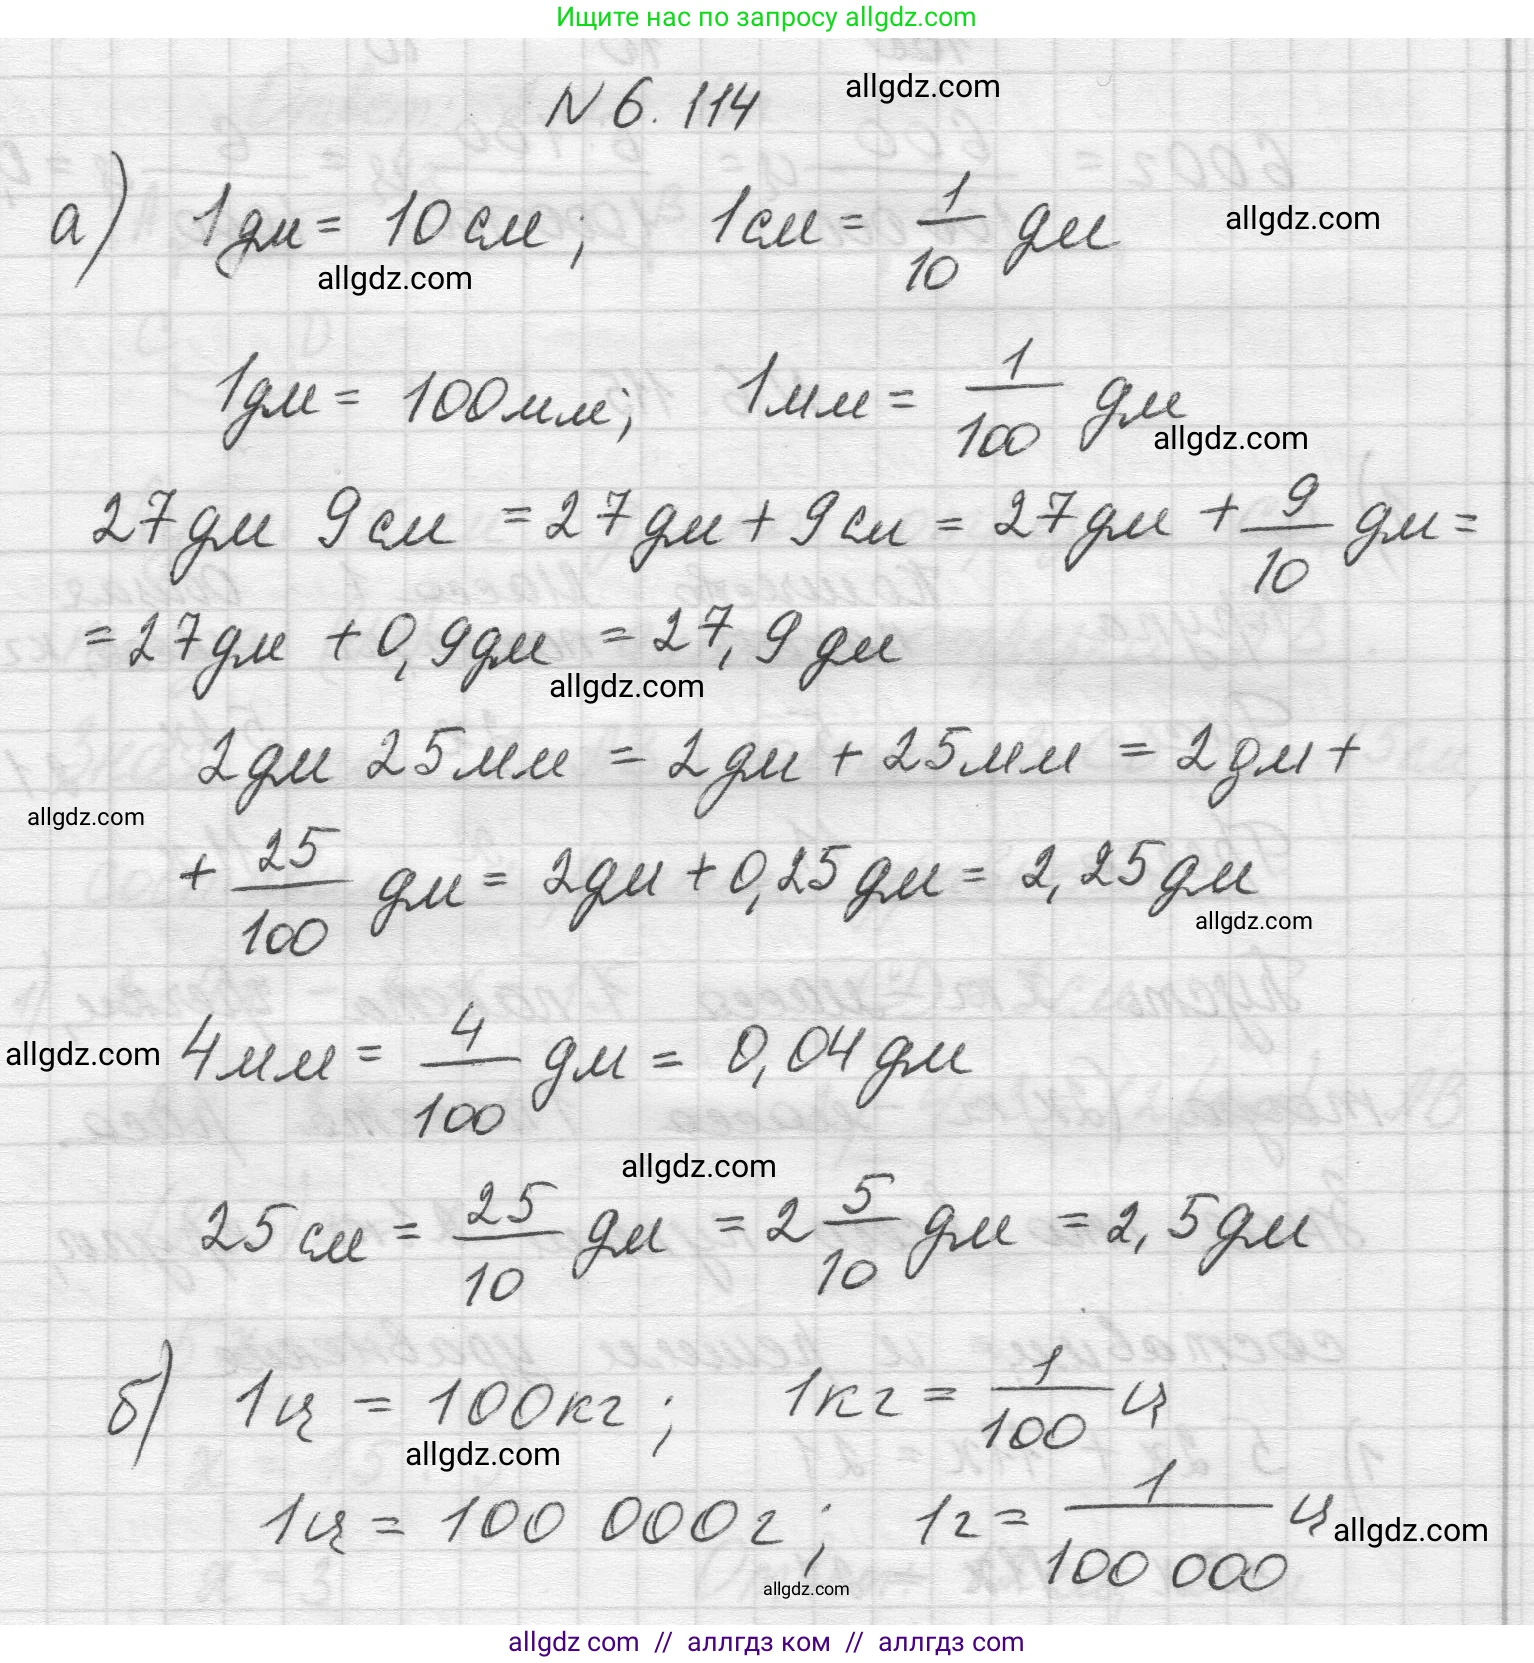 Ищите нас по запросу allgdz.com
N 6. 114 allgdz.com
а) 1дм = 10 см; 1см = 1/10 дм allgdz.com
allgdz.com
1дм = 100мм; 1мм = 1/100 дм
allgdz.com
27дм 9см = 27дм + 9см = 27дм + 9/10 дм =
= 27дм + 0,9дм = 27,9 дм
allgdz.com
2дм 25мм = 2дм + 25мм = 2дм +
allgdz.com
+ 25/100 дм = 2дм + 0,25дм = 2,25дм
allgdz.com
allgdz.com 4мм = 4/100 дм = 0,04дм
allgdz.com
25см = 25/10 дм = 2 5/10 дм = 2,5дм
б) 1ц = 100кг; 1кг = 1/100 ц
allgdz.com
1ц = 100 000г; 1г = 1/100 000 ц allgdz.com
allgdz.com
allgdz com // аллгдз ком // аллгдз com